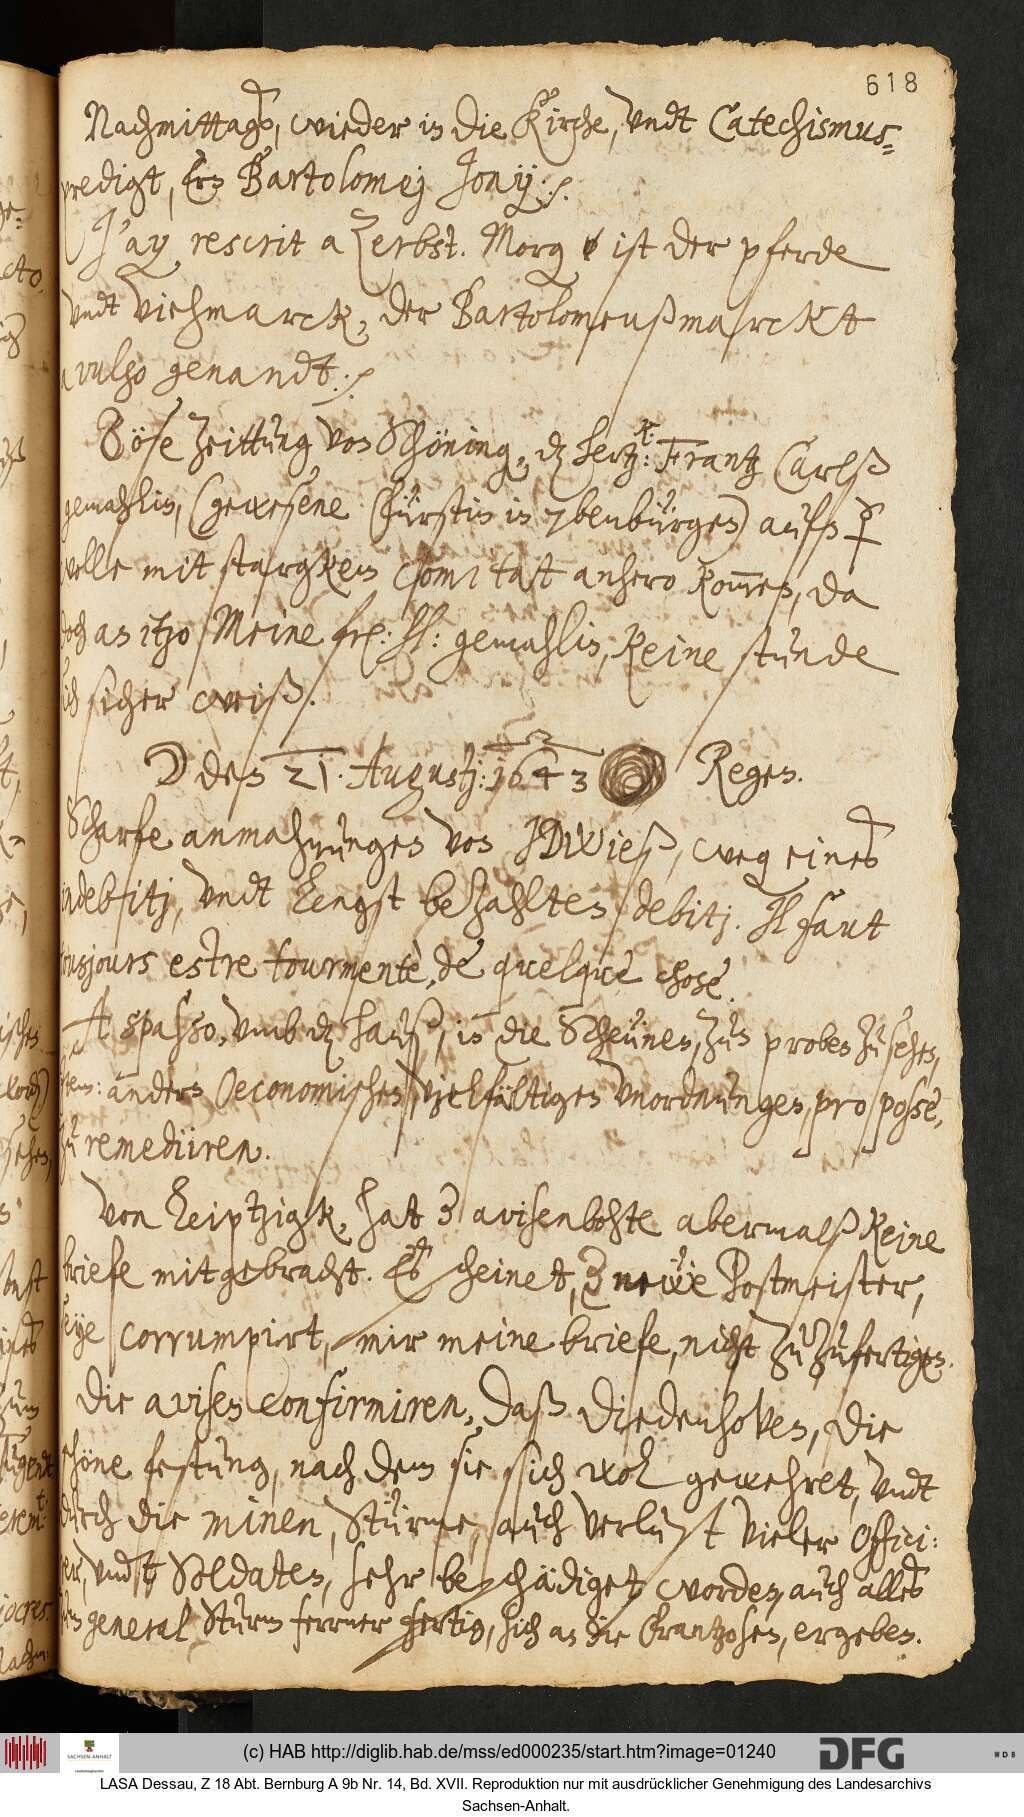 618
Nachmittags, wieder in die Kirche, vndt Catechismus-
predigt, Ern Bartolomej Jonij: /.
J'ay rescrit a Zerbst. Morg ist der pferde
vndt Viehmarck, der Bartolomeußmarckt
vulgo genandt: /
Böse zeittung von Schöning, dz hertz: Frantz Carlß
gemahlin, (gewesene Fürstin in 7benbürgen) aufs
wolle mit starckem Comitast anhero kommen, da
doch an itzo Meine frl: hl: gemahlin, keine stunde
sicher weiß.
den 21. Augustj: 1643 Regen.
Scharfe anmahnungen von JDWieß, weg eines
indebitj, vndt lengst bezahlten debitj. Il faut
tousjours estre tourmentè, de quelque chose.
A spasso, vmb dz hauß, in die Scheunen, zun proben zu sehen,
Item: andern Oeconomischen, vielfältigen vnordnungen, pro posse,
zu remediiren.
Von Leiptzigk, hat avisenbohte abermalß keine
briefe mitgebracht. Es scheinet, neẅe Postmeister,
seye corrumpirt, mir meine briefe, nicht zuzufertigen.
Die avisen confirmiren, daß Diedenhoven, die
schöne festung, nach dem sie sich wol gewehret, vndt
durch die minen, Stürme, auch verlust vieler Offici:
er, vndt Soldaten, sehr beschädiget worden, auch alles
zum general Sturm ferner fertig, sich an die Frantzosen, ergeben.
(c) HAB http://diglib.hab.de/mss/ed000235/start.htm?image=01240
SACHSEN-ANHALT
DFG
WDB
LASA Dessau, Z 18 Abt. Bernburg A 9b Nr. 14, Bd. XVII. Reproduktion nur mit ausdrücklicher Genehmigung des Landesarchivs
Sachsen-Anhalt.